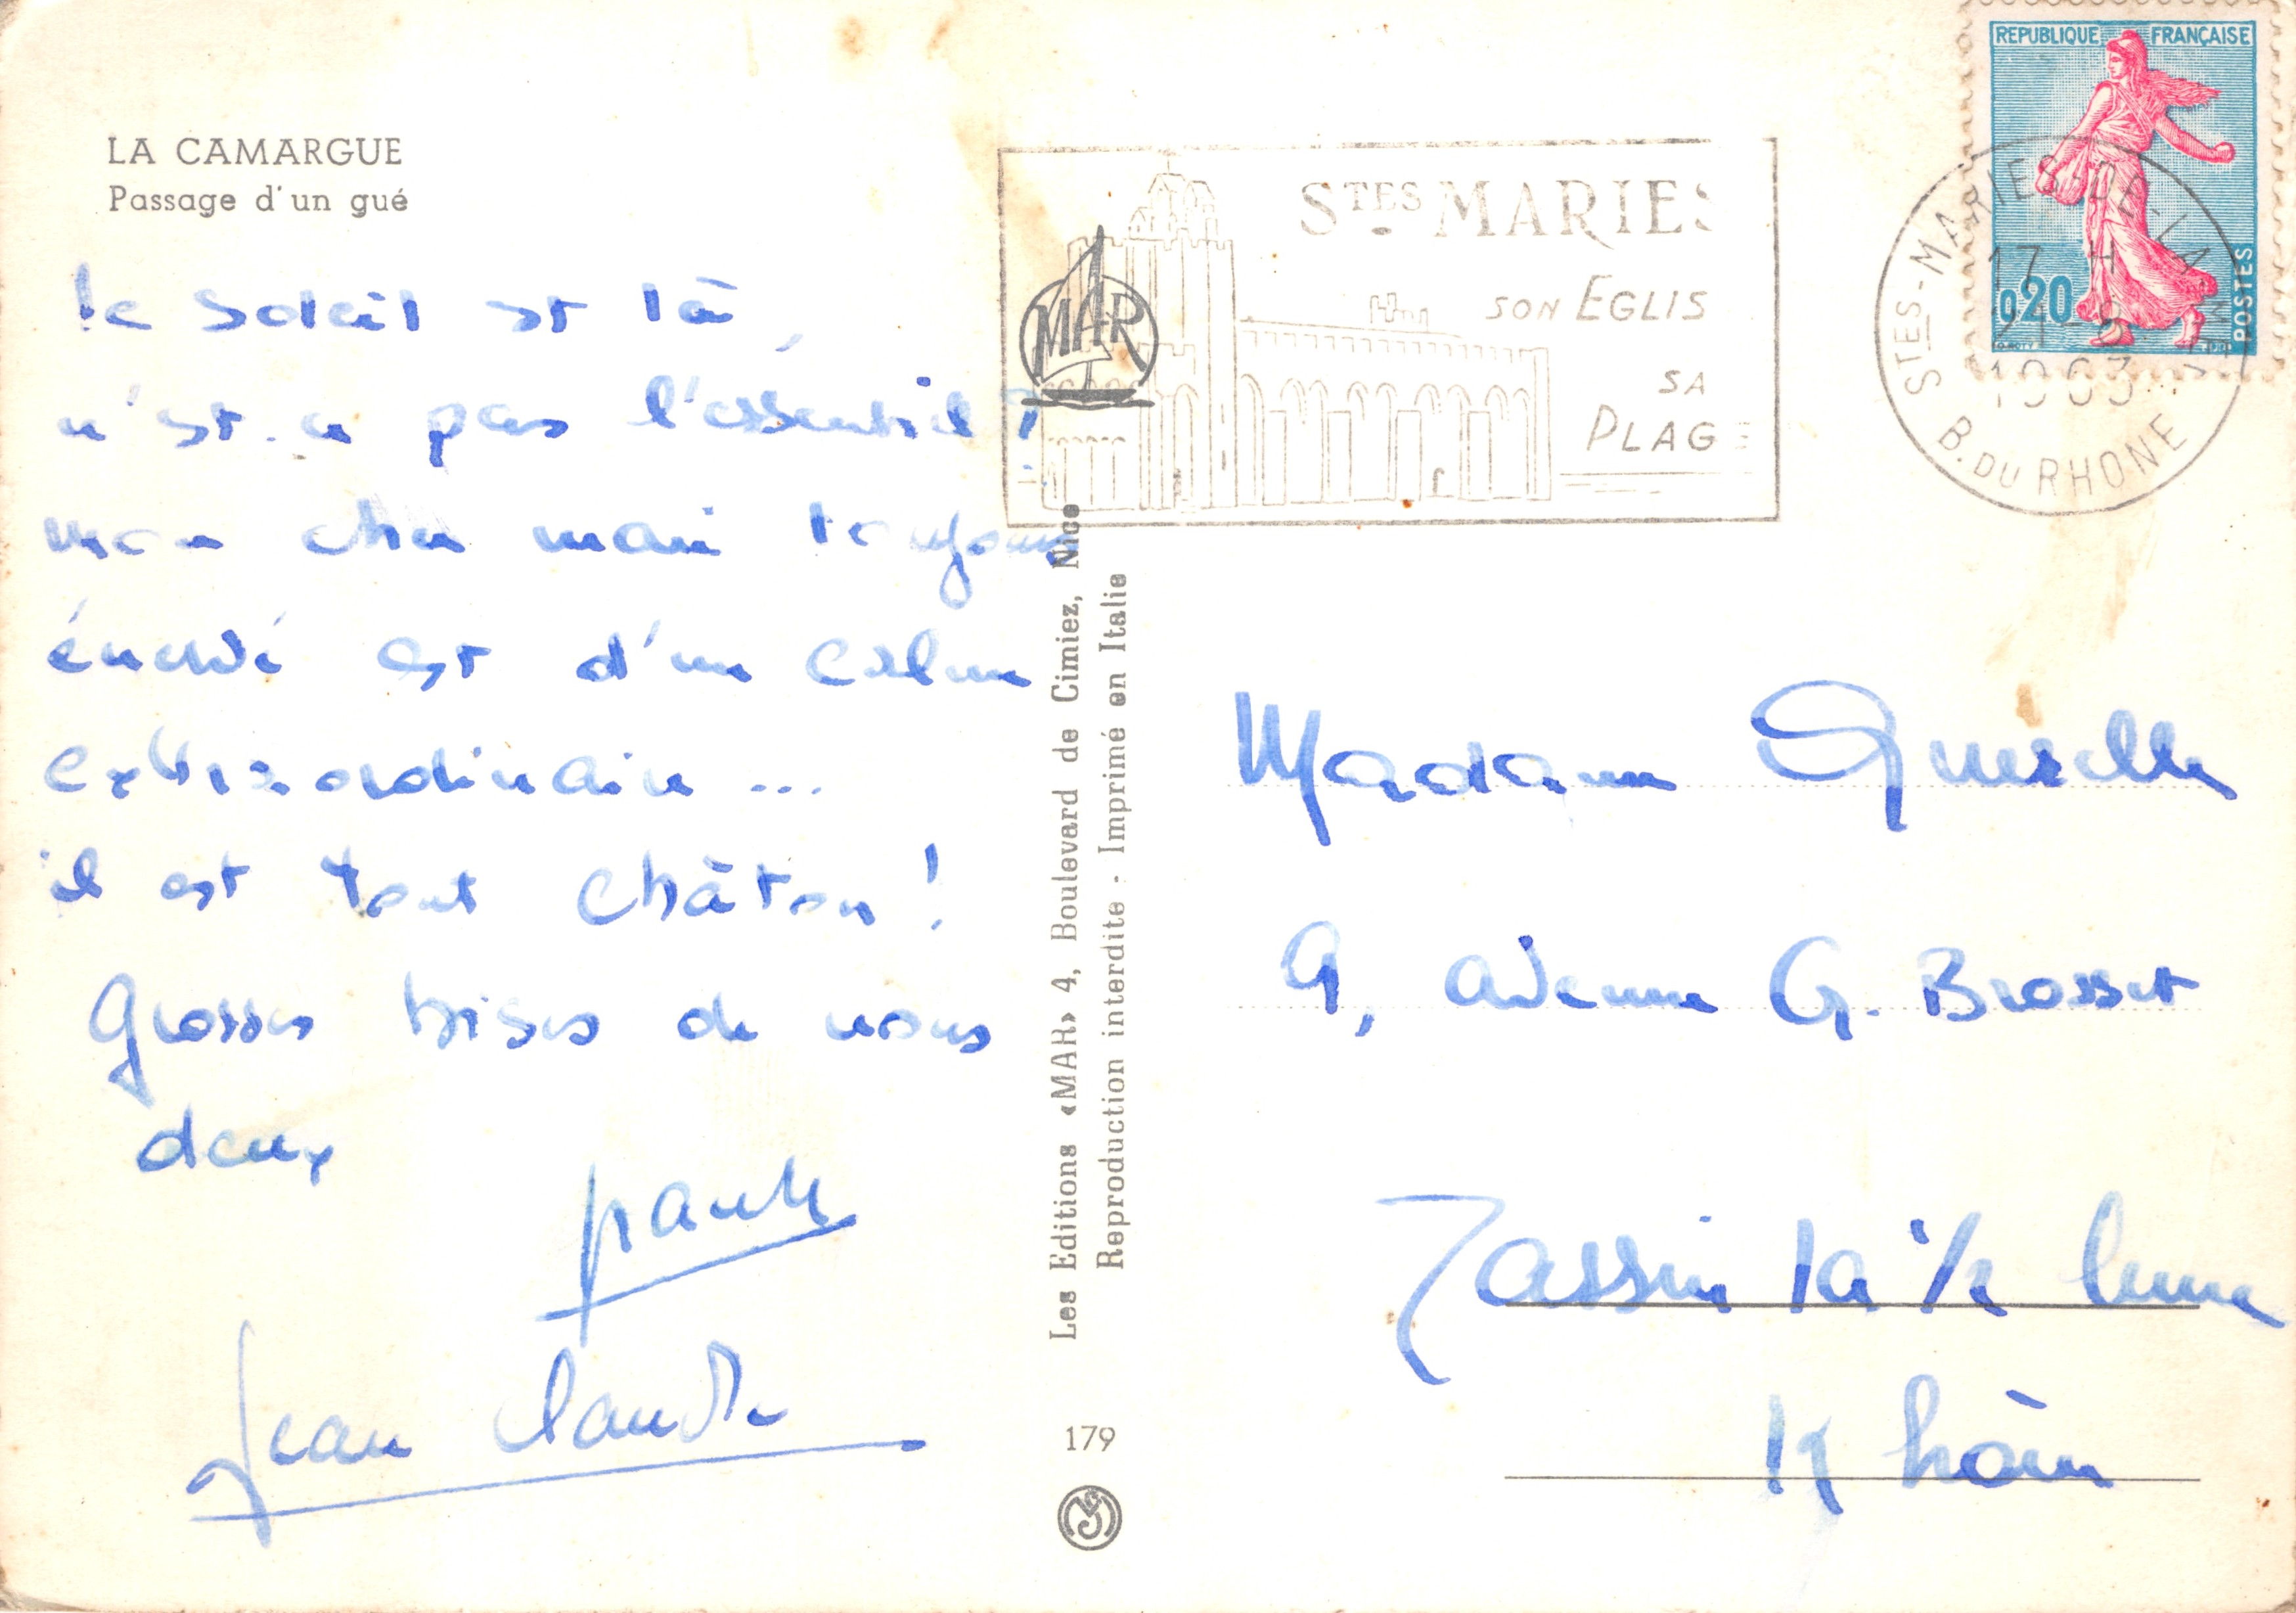 LA CAMARGUE
Passage d'un gué
le soleil est là,
n'est-ce pas l'essentiel ?
mon cher mari toujours
énervé est d'un calme
extraordinaire ...
il est tout châton !
Grosses bises de nous
deux
Paule
Jean Claude
MAR
STES MARIES
SON EGLIS
SA
PLAGE
REPUBLIQUE FRANÇAISE
0,20
POSTES
STES-MARIES-DE-LA-MER
17 H
1963
B. DU RHONE
Les Editions «MAR» 4, Boulevard de Cimiez, Nice
Reproduction interdite - Imprimé en Italie
179
Madame
9, avenue G. Brosset
Tassin la 1/2 lune
Rhône